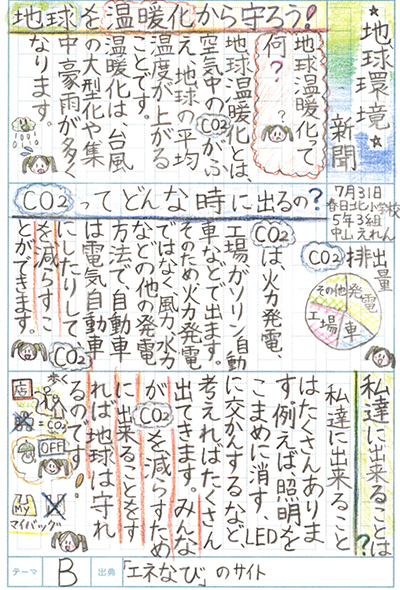 ☆地球環境☆
新聞
7月31日
春日北小学校
5年3組
中山 えれん
地球を温暖化から守ろう!
地球温暖化って
何??
地球温暖化とは、
空気中のCO2がふ
え、地球の平均
温度が上がる
ことです。
温暖化は、台風
の大型化や集
中豪雨が多く
なります。
CO2ってどんな時に出るの?
CO2排出量
発電
車
工場
その他
CO2は、火力発電、
工場ガソリン自動
車などで出ます。
そのため火力発電
ではなく風力、水力
などの他の発電
方法で、自動車
は電気自動車
にしたりして、CO2
を減らすこ
とができます。
私達に出来ることは?
私達に出来ること
はたくさんありま
す。例えば、照明を
こまめに消す、LED
に交かんするなど、
考えればたくさん
出てきます。みんな
がCO2を減らすため
に出来ることをす
れば地球は守れ
るのです!
店
歩く
=CO2
OFF
My
マイバッグ
テーマ B 出典 「エネなび」のサイト